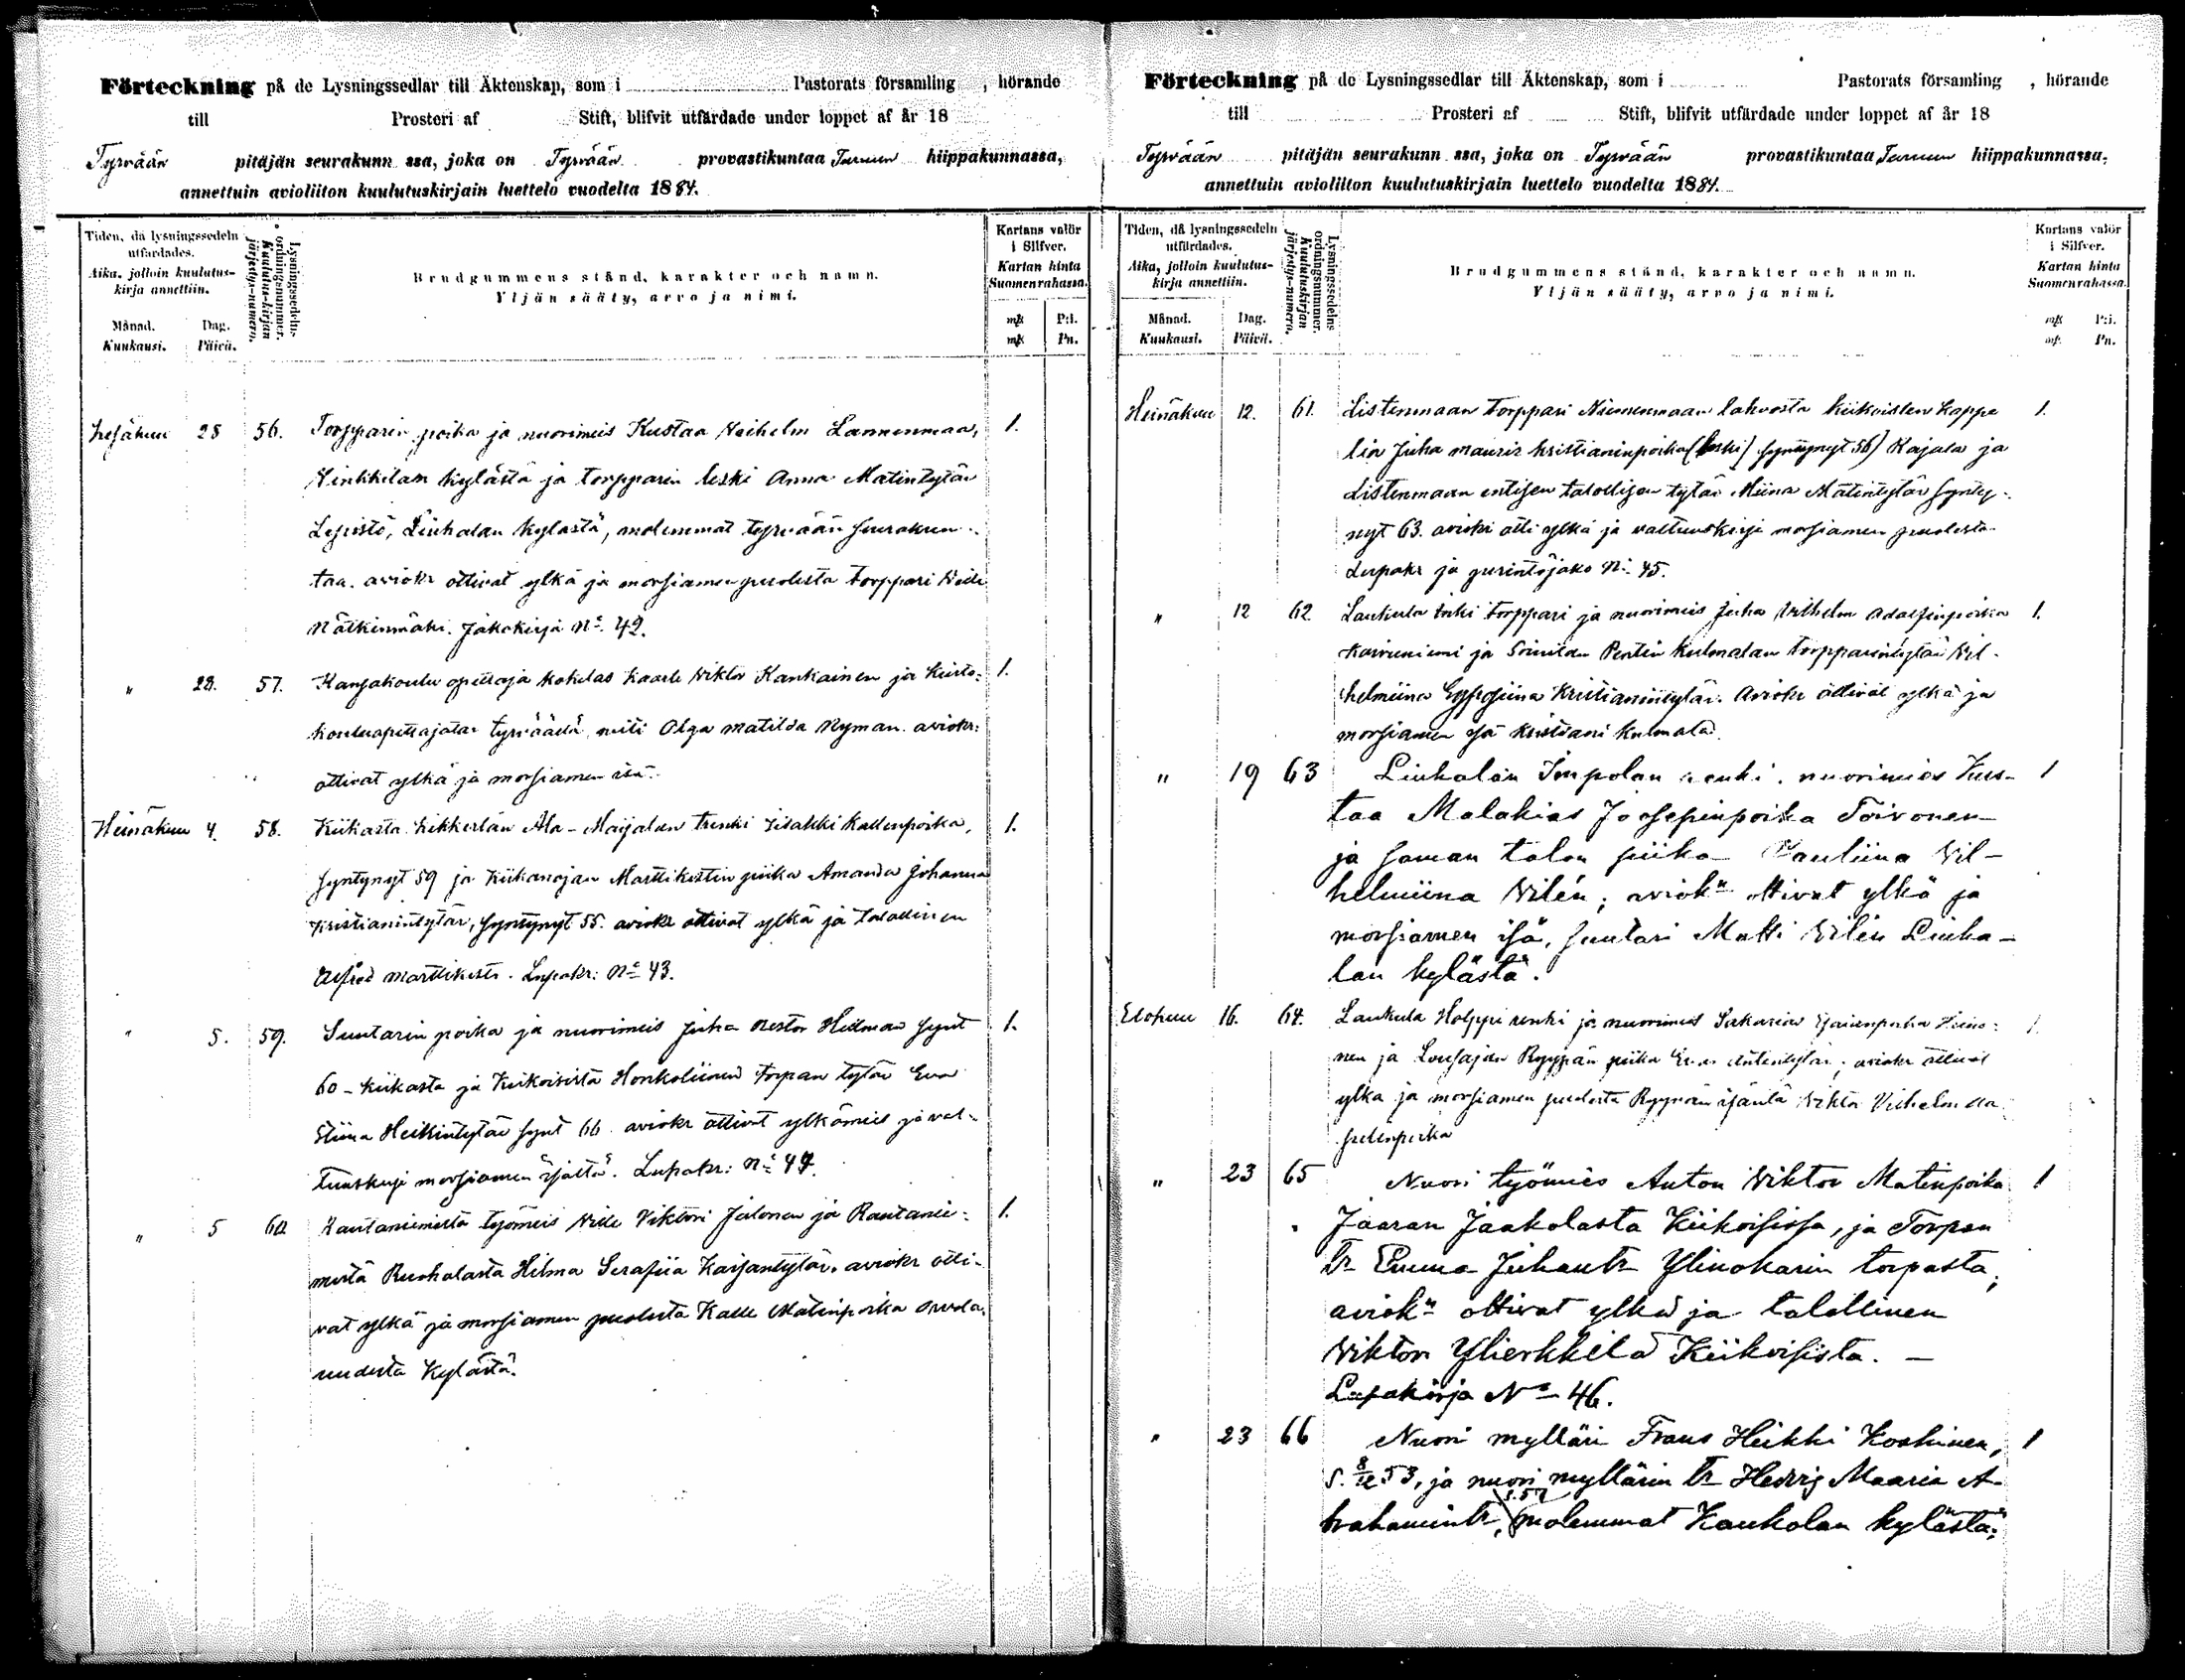 Förteckning på de Lysningssedlar till Äktenskap, som i Pastorats församling , hörande
till Prosteri af Stift, blifvit utfärdade under loppet af år 18
Tyrvään pitäjän seurakunn ssa, joka on Tyrvään provastikuntaa Turuun hiippakunnassa,
annettuin avioliiton kuulutuskirjain luettelo vuodelta 1884.
Tiden, då lysningssedeln utfärdades.
Aika, jolloin kuulutus-kirja annettiin.
Månad. Dag.
Kuukausi. Päivä.
Lysningssedelns ordningsnummer.
Kuulutus-kirjan järjestys-numero.
Brudgummens stånd, karakter och namn.
Yljän sääty, arvo ja nimi.
Kartans valör i Silfver.
Kartan hinta Suomenrahassa.
mk P:i.
mk Pn.
Kesäkuu 28 56. Torpparin poika ja nuorimies Kustaa Vilhelm Lammenmaa, 1.
kylästä ja torpparin leski Anna Matintytär
Lepistö, Liuhalan kylästä, molemmat tyrvään seurakun-
taa. aviokr ottivat ylkä ja morsiamen puolesta torppari
Nätkinmäki. Jakokirja No 42.
" 28. 57. Kansakoulu opettaja kokelas Kaarle Viktor Kankainen ja kierto- 1.
kouluopettajatar tyrväästä neiti Olga Matilda Nyman. aviokr:
ottivat ylkä ja morsiamen isä.
Heinäkuu 4. 58. Kiikasta Ala-Maijalan trenki Kallenpoika, 1.
syntynyt 59 ja Kiikanojan Marttikestin piika Amanda Johanna
Kristianintytär, syntynyt 55. aviokr ottivat ylkä ja talollinen
Alfred marttikesti. Lupakr: No 43.
" 5. 59. Suutarin poika ja nuorimies Juha Nestor Hellman synt 1.
60 – kiikasta ja Kiikoisista torpan tytär Eva
Stiina Heikintytär synt 66 aviokr ottivat ylkämies ja val-
tuuskirja morsiamen isältä. Lupakr: No 44.
" 5 60. Rautaniemestä työmies Ville Viktori Jalonen ja Rautanie- 1.
mestä Ruohalasta Hilma Serafiia Kaijantytär. aviokr otti-
vat ylkä ja morsiamen puolesta Kalle Matinpoika
kylästä.
Förteckning på de Lysningssedlar till Äktenskap, som i Pastorats församling , hörande
till Prosteri af Stift, blifvit utfärdade under loppet af år 18
Tyrvään pitäjän seurakunn ssa, joka on Tyrvään provastikuntaa Turuun hiippakunnassa,
annettuin avioliiton kuulutuskirjain luettelo vuodelta 1884.
Tiden, då lysningssedeln utfärdades.
Aika, jolloin kuulutus-kirja annettiin.
Månad. Dag.
Kuukausi. Päivä.
Lysningssedelns ordningsnummer.
Kuulutuskirjan järjestys-numero.
Brudgummens stånd, karakter och namn.
Yljän sääty, arvo ja nimi.
Kartans valör i Silfver.
Kartan hinta Suomenrahassa.
mk P:i.
mk Pn.
Heinäkuu 12. 61. Listenmaan torppari Niemenmaan lahvosta kiikoisten kappe 1.
lia Juha mauris kristianinpoika (leski) syntynyt 56) Kajala ja
Listenmaan entisen talollisen tytär Miina Matintytär synty-
nyt 63. aviokr otti ylkä ja valtuuskirja morsiamen puolesta
Lupakr ja perintöjako No 45.
" 12 62. Laukula torppari ja nuorimies Juha Vilhelm Adolfinpoika 1.
Koivuniemi ja Pentin Kulmalan torpparintytär Vil-
helmiina Kristianintytär. Aviokr ottivat ylkä ja
morsiamen isä kristiani Kulmala.
" 19 63 Liuhalan Impolan renki, nuorimies Kus- 1
taa Malakias Joosepinpoika Toivonen
ja saman talon piika Pauliina Vil-
helmiina Vilén; aviokn ottivat ylkä ja
morsiamen isä, suutari Matti Vilén Liuha-
lan kylästä.
Elokuu 16. 64. Laukula Holppi renki ja nuorimies Sakarias Heino- 1.
nen ja Ryyppän piika Eva Antintytär; aviokr ottivat
ylkä ja morsiamen puolesta isäntä Viktor Vilhelm
" 23 65 Nuori työmies Anton Viktor Matinpoika 1
Jaaran Jaakolasta Kiikoisissa, ja Torpan
tr Emma Juhantr Ylinokarin torpasta;
aviokn ottivat ylkä ja talollinen
Viktor Ylierkkilä Kiikoisista. –
Lupakirja No 46.
" 23 66 Nuori mylläri Frans Heikki Koskinen, 1
s. 8/12 53, ja nuori myllärin tr Hedvig Maaria A-
s. 57
brahamintr, molemmat Kaukolan kylästä;